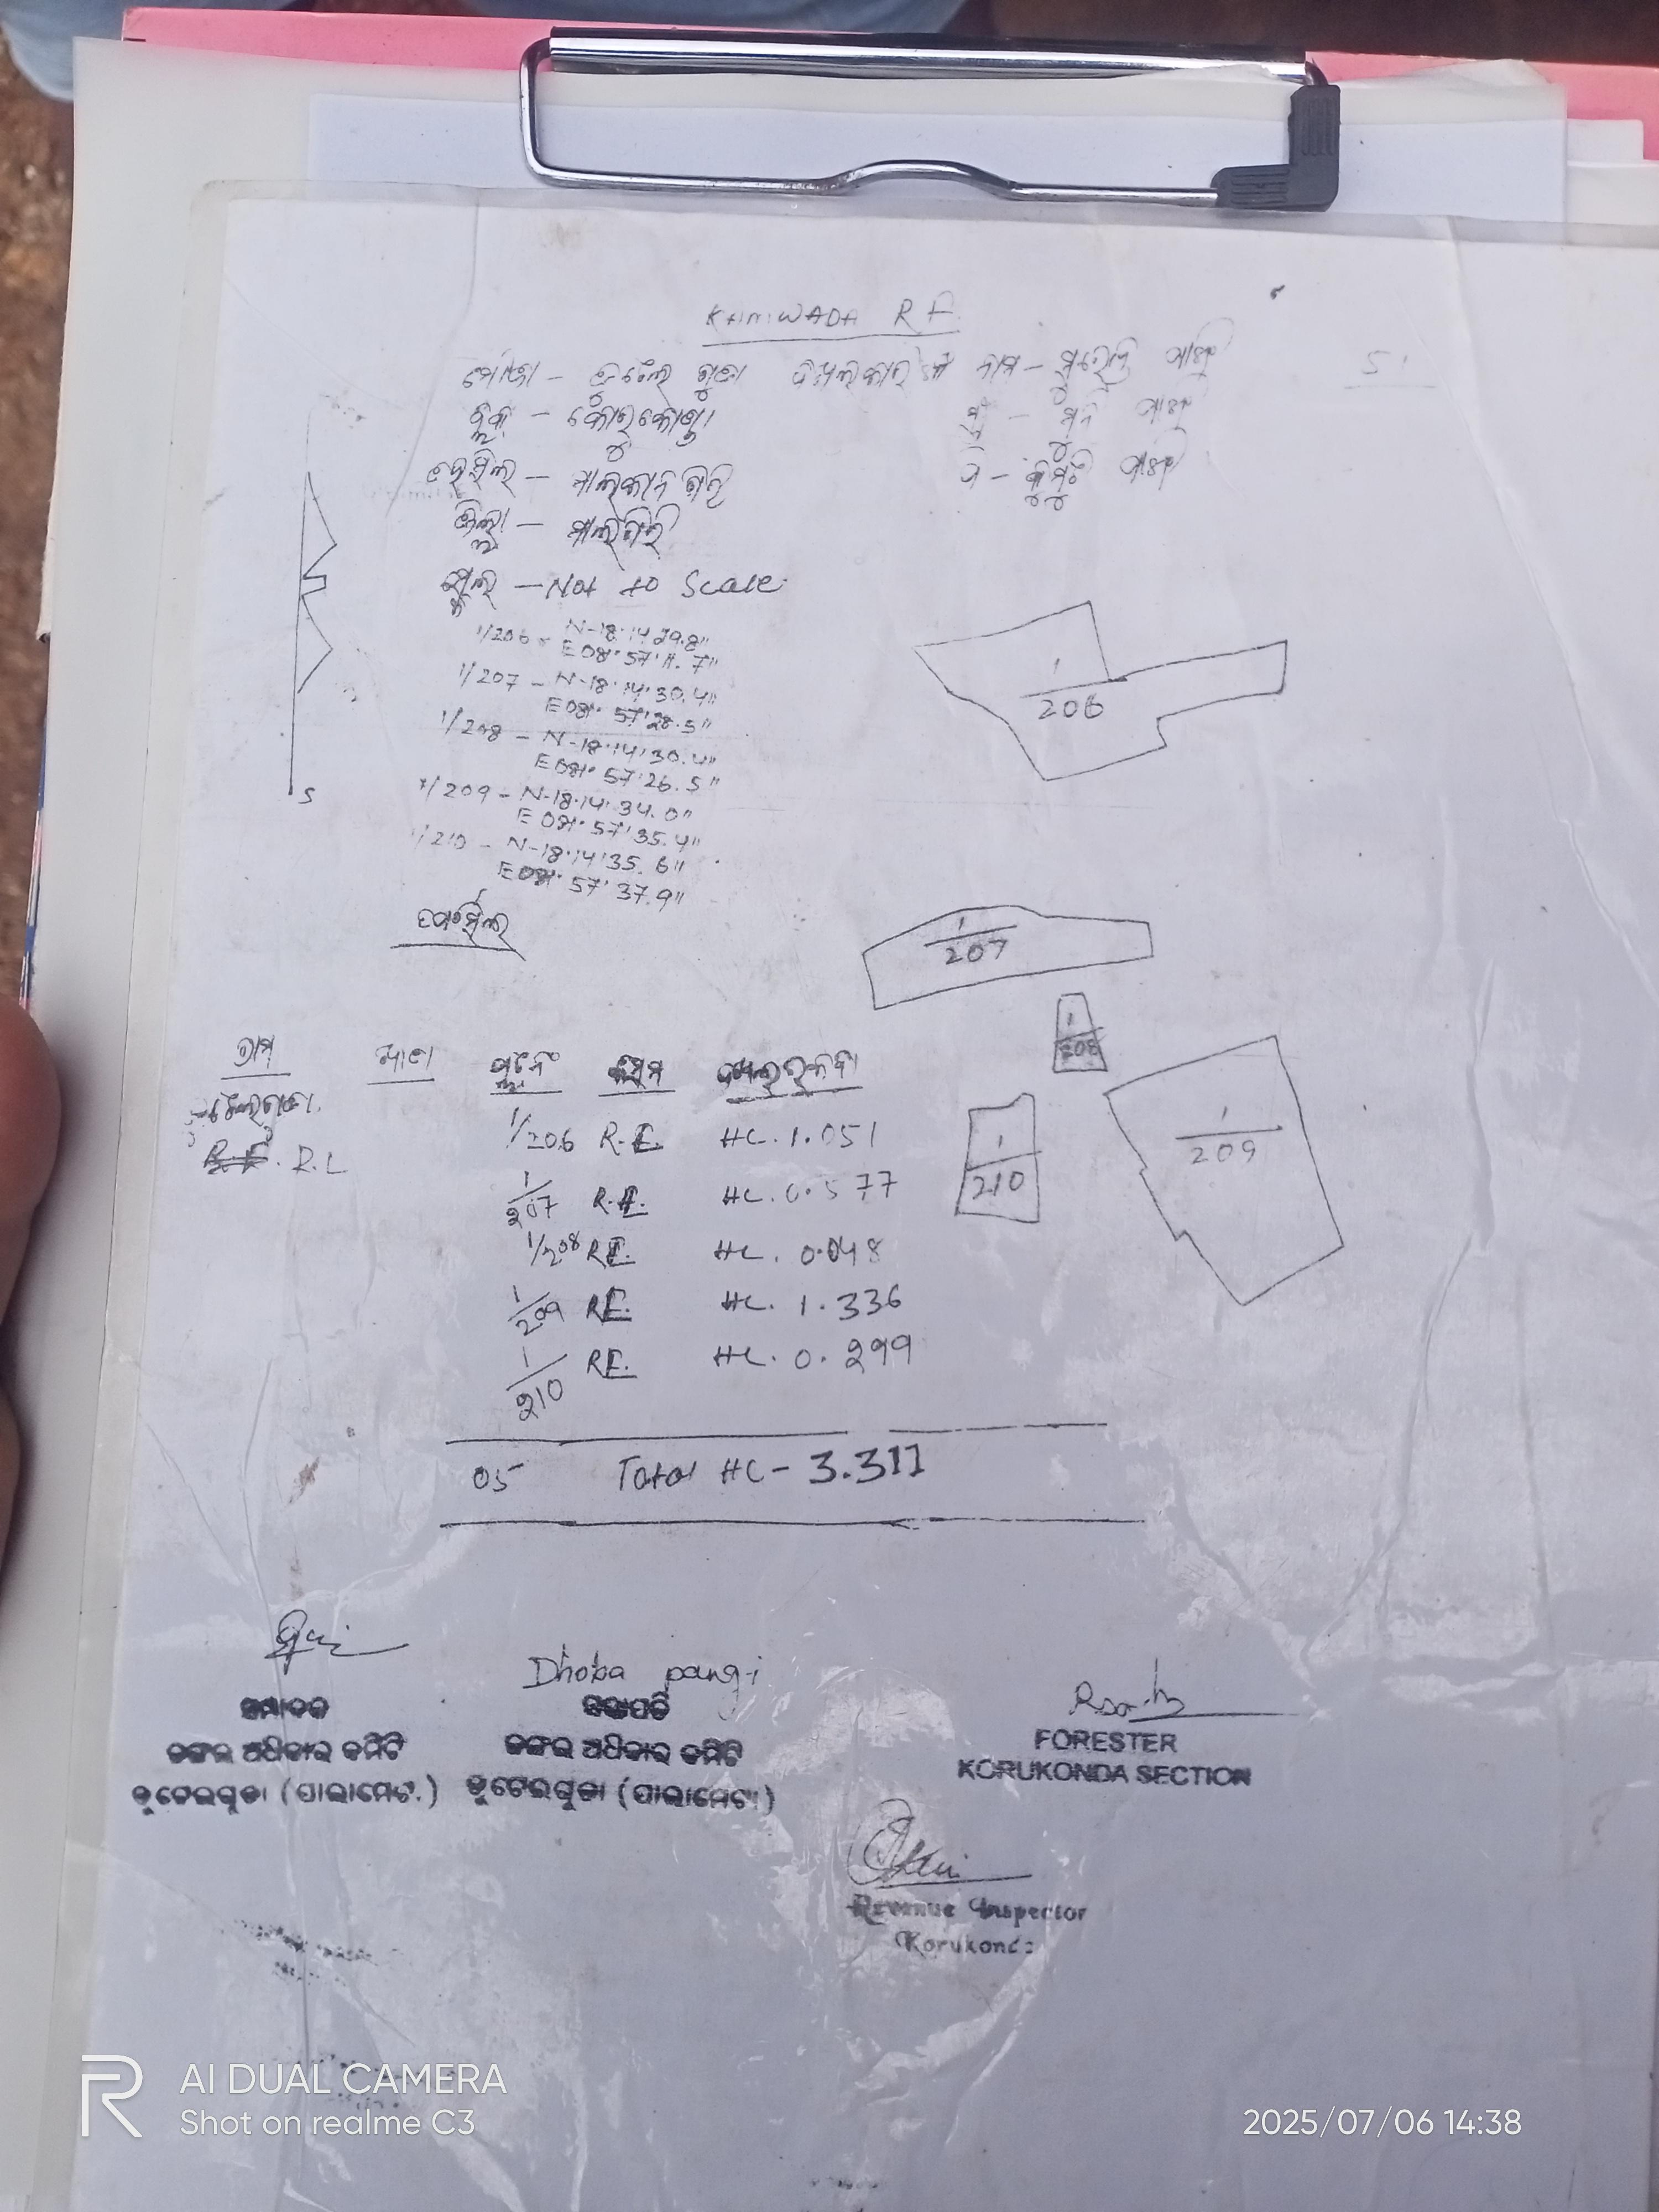 KHAIRWADA R F.
ମୌଜା – ଡୁଟେଲ ଗୁଡା ଦଖଲକାରଙ୍କ ନାମ –
ବ୍ଲକ – କୋରୁକୋଣ୍ଡା
ତହସିଲ – ମାଲକାନଗିରି
ଜିଲ୍ଲା – ମାଲଗିରି
ସ୍କେଲ – Not to Scale
1/206 - N-18°14'29.8"
E 081° 57' 11.7"
1/207 - N-18°14'30.4"
E 081° 57' 28.5"
1/208 - N-18°14'30.4"
E 081° 57' 26.5"
1/209 - N-18°14'34.0"
E 081° 57' 35.4"
1/210 - N-18°14'35.6"
E 081° 57' 37.9"
S
1/206
1/207
1/208
1/209
1/210
ଗ୍ରାମ ଖାତା ପ୍ଲଟନଂ କିସମ ଦଖଲରକବା
R.F. R.L
1/206 R.F. HC. 1.051
1/207 R.F. HC. 0.577
1/208 R.F. HC. 0.048
1/209 R.F. HC. 1.336
1/210 R.F. HC. 0.299
05 Total HC - 3.311
Dhoba pangi
ସମ୍ପାଦକ
ଜଙ୍ଗଲ ଅଧିକାର କମିଟି
ଡୁଟେଇଗୁଡା (ପାଲାମେଟା)
ସଭାପତି
ଜଙ୍ଗଲ ଅଧିକାର କମିଟି
ଡୁଟେଇଗୁଡା (ପାଲାମେଟା)
FORESTER
KORUKONDA SECTION
Revenue Inspector
Korukonda
AI DUAL CAMERA
Shot on realme C3
2025/07/06 14:38